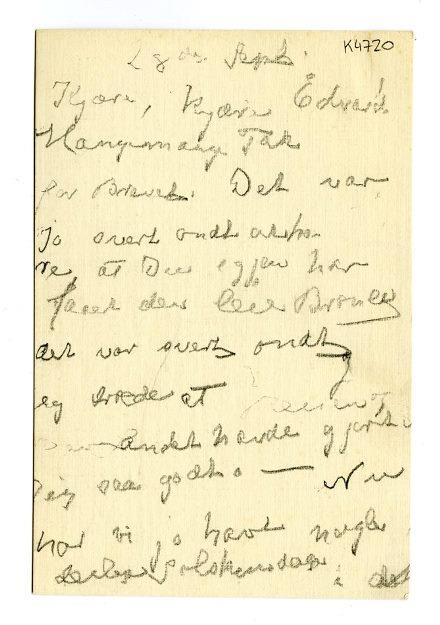 K4720
28de Sept.
Kjære, kjære Edvard.
Mangemange Tak
for Brevet. Det var
jo svert ondt at hø-
re, at Du igjen har
faaet den leie Bronkit
det var svert ondt,
eg trode at
andet havde gjort
dig saa godt. — Nu
har vi jo havt nogle
deilige Solskinsdage i det